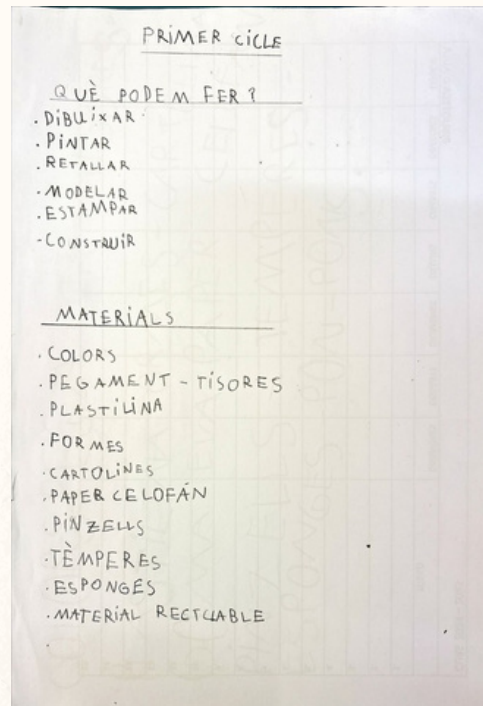 PRIMER CICLE
QUÈ PODEM FER?
. DIBUIXAR
. PINTAR
. RETALLAR
. MODELAR
. ESTAMPAR
- CONSTRUIR
MATERIALS
. COLORS
. PEGAMENT - TISORES
. PLASTILINA
. FORMES
. CARTOLINES
. PAPER CELOFÁN
. PINZELLS
. TÈMPERES
. ESPONGES
. MATERIAL RECICLABLE